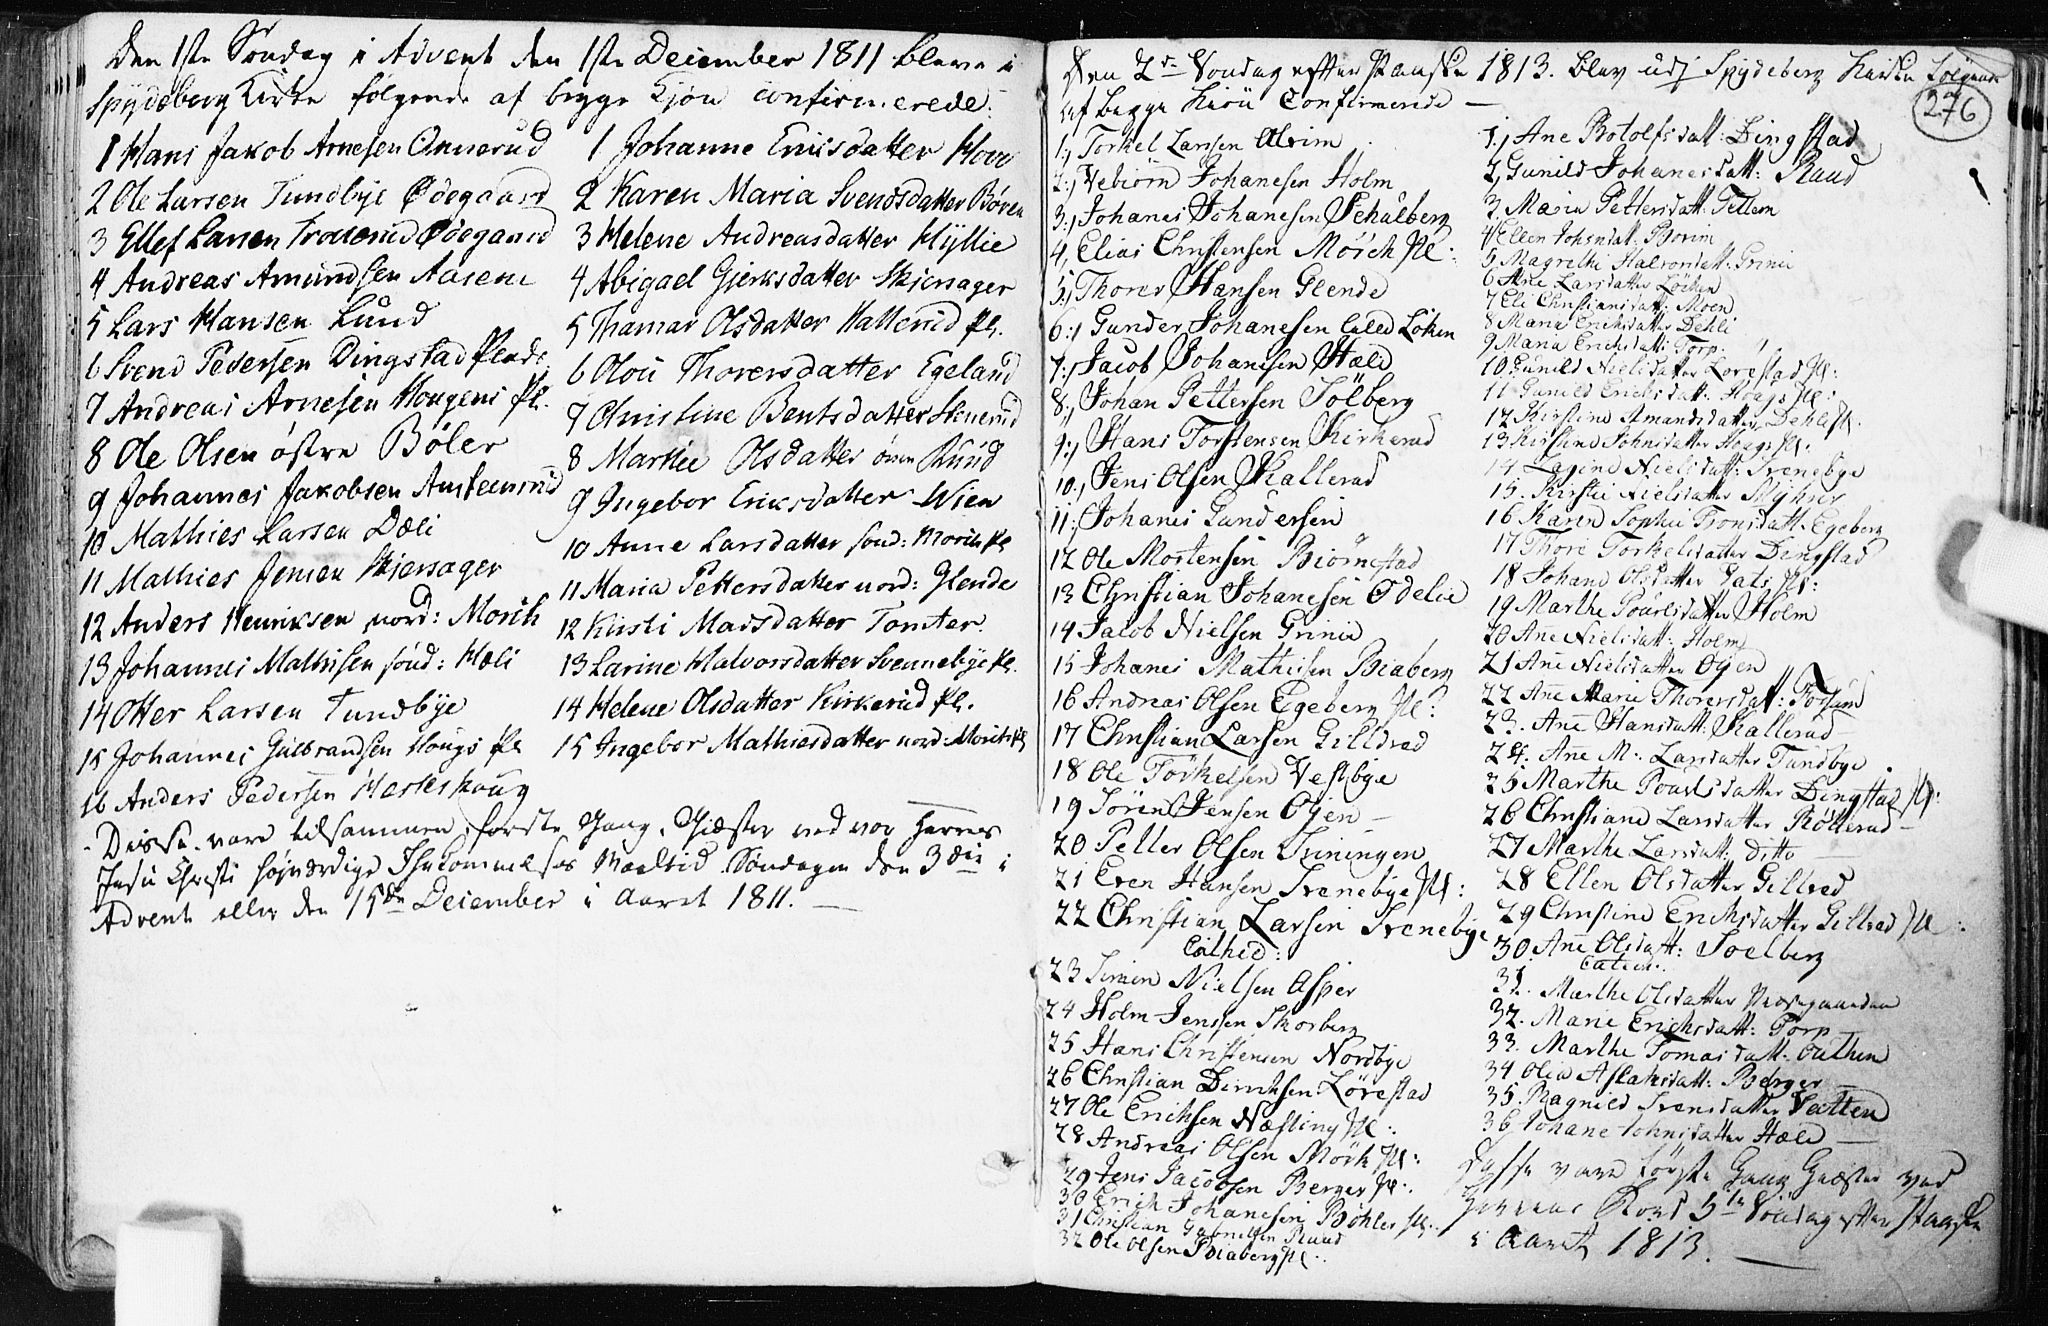 Den 1ste Søndag i Advent den 1ste December 1811 bleve i
Spydeberg Kirke følgende af begge Kjøn confirmerede:
1 Hans Jakob Arnesen
2 Ole Larsen Tundbye Ødegaard
3 Ellef Larsen Ødegaard
4 Andreas Amundsen Aasene
5 Lars Hansen Lund
6 Svend Pedersen Dingstad Plads
7 Andreas Arnesen Hougens Pl.
8 Ole Olsen østre Bøler
9 Johannes Jakobsen
10 Mathies Larsen Dæli
11 Mathies Jensen Skjersager
12 Anders Henriksen nord: Morsth
13 Johannes Mathisen sønd: Hæli
14 Otter Larsen Tundbye
15 Johannes Gulbrandsen Hougs Pl
16 Anders Pedersen Hesteskoug
1 Johanne Hov
2 Karen Maria Svendsdatter Bøven
3 Helene Andreasdatter Hyllie
4 Abigael Gjerksdatter Skjersager
5 Thamar Olsdatter Hallerud Pl.
6 Olou Thorersdatter Egeland
7 Christine Bentsdatter Stenerud
8 Marthe Olsdatter Ruud
9 Ingebor Eriksdatter Wien
10 Anne Larsdatter sønd: Pl
11 Maria Pettersdatter nord: Glende
12 Kirsti Madsdatter Tomter
13 Larine Halvorsdatter Svennebye Pl.
14 Helene Olsdatter Kirkerud Pl.
15 Ingebor Mathiesdatter nord: Pl
Disse vare tilsammen første Gang Giæster ved vor Herres
Jesu Christi høiværdige Ihukommelses Maaltid Søndagen den 3die i
Advent eller den 15de December i Aaret 1811.
Den 2den Søndag efter Paaske 1813. blev udj Spydeberg Kirke følgende
af begge Kiøn Confirmerede
276
1, Torkel Larsen Alvim
2, Vebiørn Johanesen Holm
3, Johanes Johanesen Schulberg
4, Elias Christensen Mörch Pl:
5, Thorer Hansen Glende
6, Gunder Johanesen Löken
7, Jacob Johanesen Hæld
8, Johan Pettersen Sölberg
9, Hans Torstensen Kirkerud
10, Jens Olsen Kallerud
11, Johanes Gundersen
12 Ole Mortensen Biörnestad
13 Christian Johanesen Ödelie
14 Jacob Nielsen Grinie
15 Johanes Mathiesen Biaberg
16 Andreas Olsen Egeberg Pl:
17 Christian Larsen Gillerud
18 Ole Torkelsen Vestbye
19 Sören Jensen Oyen
20 Petter Olsen
21 Even Hansen Svenebye Pl:
22 Christian Larsen Svenebye
23 Simen Nielsen Asper
24 Holm Jensen Skorberg
25 Hans Christensen Nordbye
26 Christian Lörestad
27 Ole Erichsen Næsting Pl:
28 Andreas Olsen Mörk Pl:
29 Jens Jacobsen Berger Pl:
30 Erich Johanesen Böhler Pl:
31 Christian Gabrielsen Ruud
32 Ole Olsen Biaberg Pl:
1, Ane Botolfsdatt: Dingstad
2, Gunild Johanesdatt: Ruud
3, Maria Pettersdatt:
4 Ellen Johsndatt:
5 Magrethe Halvorsdatt: Grinie
6 Ane Larsdatter Löchen
7 Eli Christiansdatt: Moen
8 Maria Erichsdatter Dehli
9 Maria Erichsdatt: Torp
10 Gunild Nielsdatter Lörestad Pl:
11 Gunild Erichsdatt: Hougs Pl:
12 Kirstine Amundsdatter Dehli Pl:
13 Kirstine Johnsdatter Hougs Pl:
14 Nielsdatt: Svenebye
15. Kirstie Nielsdatter
16 Karen Sophie Tronsdatt: Egeberg
17 Thore Torkelsdatter Dingstad
18 Johane Olsdatter Pl:
19 Marthe Pouelsdatter Holm
20 Ane Nielsdatt: Holm
21 Ane Nielsdatter Oyen
22 Ane Marie Thorersdatt:
23. Ane Hansdatt: Kallerud
24. Ane M: Larsdatter Tundbye
25 Marthe Pouelsdatter Dingstad Pl:
26 Christiane Larsdatter Röllerud
27 Marthe Larsdatt: ditto
28 Ellen Olsdatter Gillrud
29 Christine Erichsdatter Gillrud Pl:
30. Ane Olsdatt: Soelberg
31. Marthe Olsdatter Præstegaarden
32. Marie Erichsdatt: Torp
33. Marthe Tomasdatt:
34 Olea Aslaksdatt: Berger
35. Ragnild Svensdatter Vatten
36 Johane Johnsdatter Hæld
Disse vare første Gang Giæster ved
Herrens Bord 5te Söndag efter Paaske
i Aaret 1813.